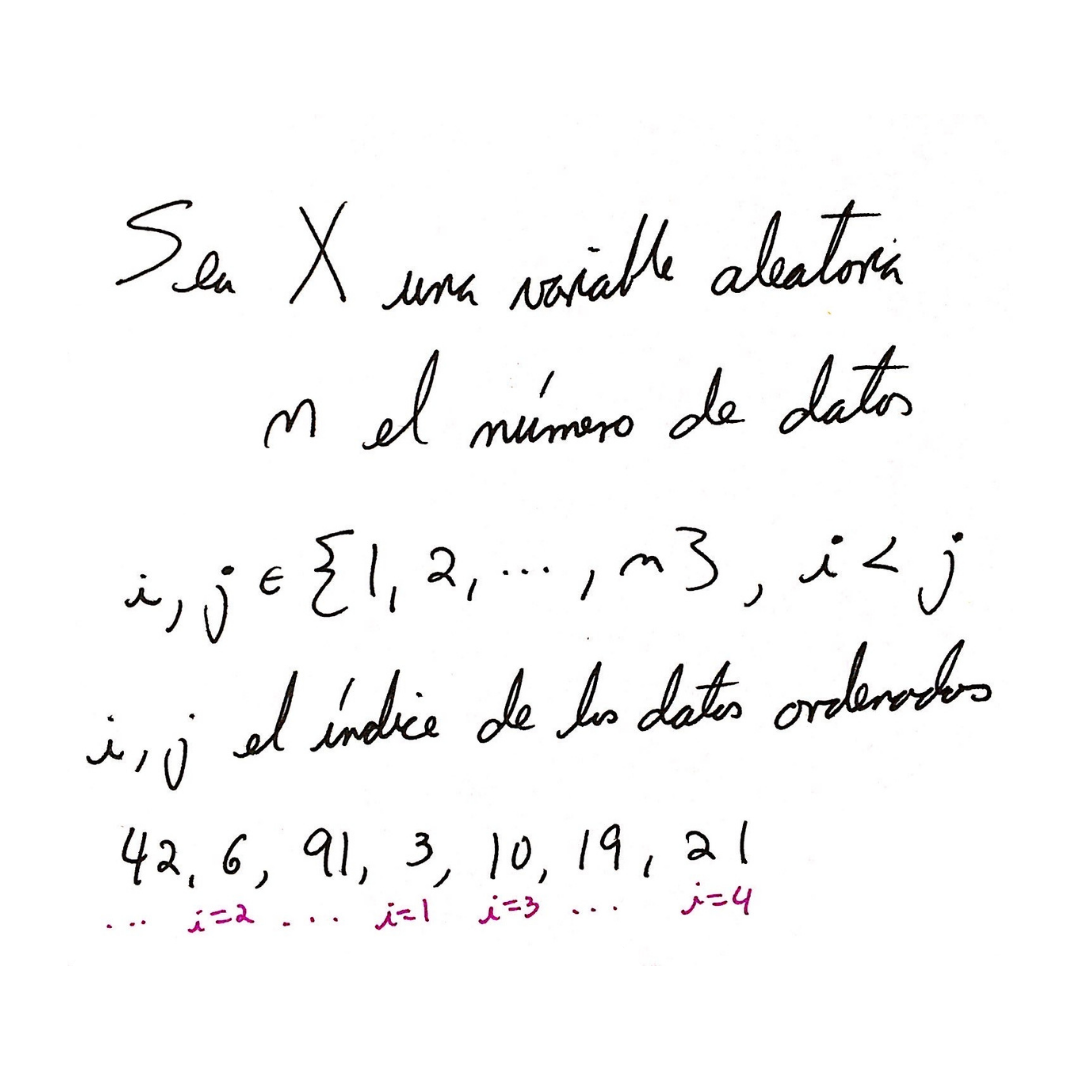 Sea X una variable aleatoria
n el número de datos
i, j ∈ {1, 2, ..., n}, i < j
i, j el índice de los datos ordenados
42, 6, 91, 3, 10, 19, 21
... i=2 ... i=1 i=3 ... i=4